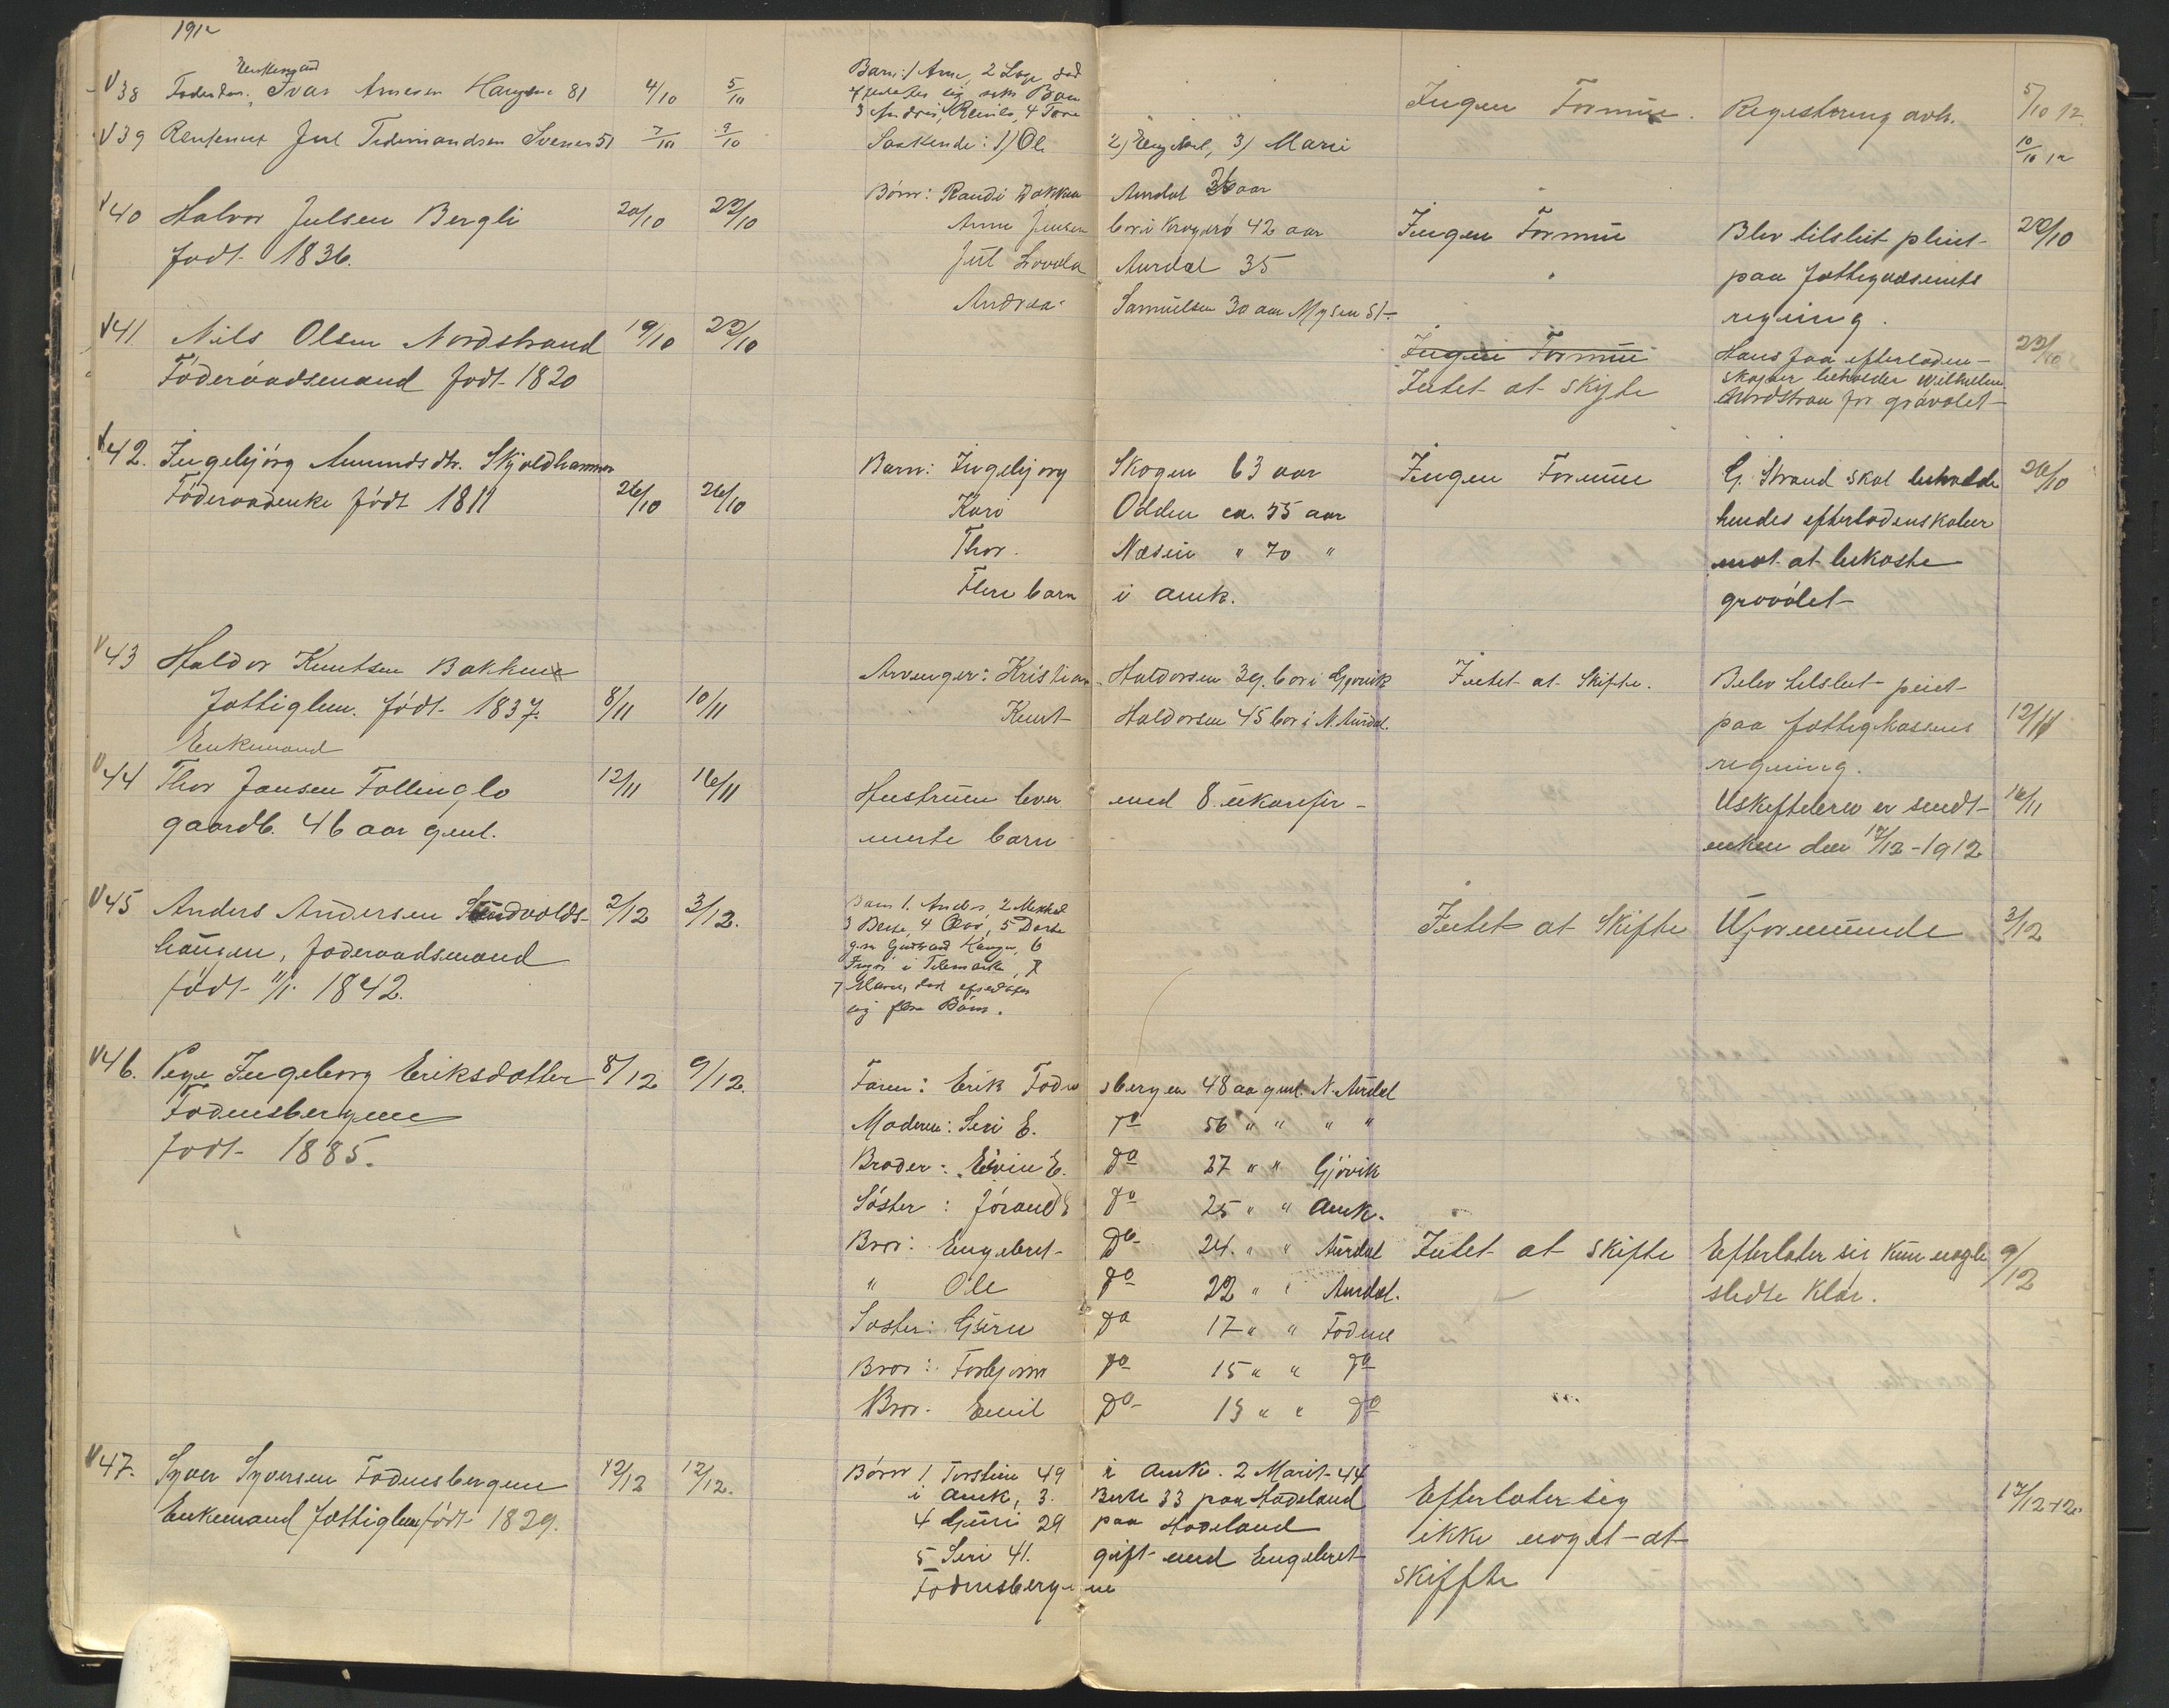 1912
V38 Foderdm. Enkemand Ivar Arnesen Haugen 81 4/10 5/10 Barn: 1 Arne, 2 Lage død
efterlater sig som Barn
3 Andris, Reinls, 4 Tore Ingen Formue. Registrering avh. 5/10 12
V39 Jul Tidemandsen Svenes 51 7/10 9/10 Søskende: 1) Ole 2) Engebret, 3) Marie 10/10 12
V40 Halvor Julsen Bergli 20/10 22/10 Børn: Randi Bakken Aurdal 36 aar
født 1836. Anne Jensen bor i Kragerø 42 aar Ingen Formue Blev tilslut pleiet 22/10
Jul Lovold Aurdal 35 paa fattigvæsenets
Andrea Samuelsen 30 aar Mysen St. regning.
V41 Nils Olsen Nordstrand 19/10 22/10 Ingen Formue Hans faa efterladen- 22/10
Föderaadsmand født 1820 Intet at skifte skaper beholder Wilhelm
Nordstran for gravölet
V42. Ingebjörg Amundsdtr. Skjoldhammer Barn: Ingebjørg Skogen 63 aar Ingen Formue G. Strand skal beholde 26/10
Föderaadenke født 1811 26/10 26/10 Kari Odden ca. 55 aar hendes efterladenskaber
Thor. Næsin " 70 " mot at bekoste
Flere barn i amk. gravölet
V43 Haldor Knutsen Bakken Arvinger: Kristian Haldorsen 39. bor i Gjøvik Intet at Skifte. Belev tilslut peiet
fattiglem. født 1837. 8/11 10/11 Knut Haldorsen 45 bor i N. Aurdal. paa fattigkassens 12/11
Enkemand regning.
V44 Thor Jansen Follinglo 12/11 16/11 Hustruen lever med 8 ukonfir- Uskifteterev er sendt 16/11
gaardb. 46 aar gml. merte barn enken den 17/12-1912
V45 Anders Andersen Sundvolds- 2/12 3/12. Barn 1. Anders 2 Mikkel
haugen, föderaadsmand 3 Berte, 4 Eivo, 5 Dorte
født 11/1 1842. Gudbrand Haugen, 6
i Telemarken, 7
7 Maren, død efterlater
sig flere Børn. Intet at Skifte Uformuende 3/12
V46. Pige Ingeborg Eriksdatter 8/12 9/12. Faren: Erik Fodnesbergen 48 aa gml. N. Aurdal
Fodnesbergene Moderen: Siri E. do 56 " " " "
født 1885. Broder: Eivin E. do 27 " " Gjövik
Söster: Jörand E do 25 " " Amk.
Bror: Engebret do 24. " " Aurdal Intet at Skifte Efterlater sig kun nogle 9/12
" Ole do 22 " " Aurdal. slidte klær.
Søster: Guru do 17 " " Fodnes
Bror: Torbjørn do 15 " " do
Bror. Emil do 13 " " do
V47. Syver Syversen Fodnesbergene 12/12 12/12. Børn 1 Torstein 49 i Amk. 2 Marit 44
Enkemand fattiglem født 1829. i amk, 3. Berte 33 paa Hadeland Efterlater sig 17/12-12.
4 Guri 29 paa Hadeland ikke noget at
5 Siri 41. gift med Engebret skiffte
Fodnesbergene